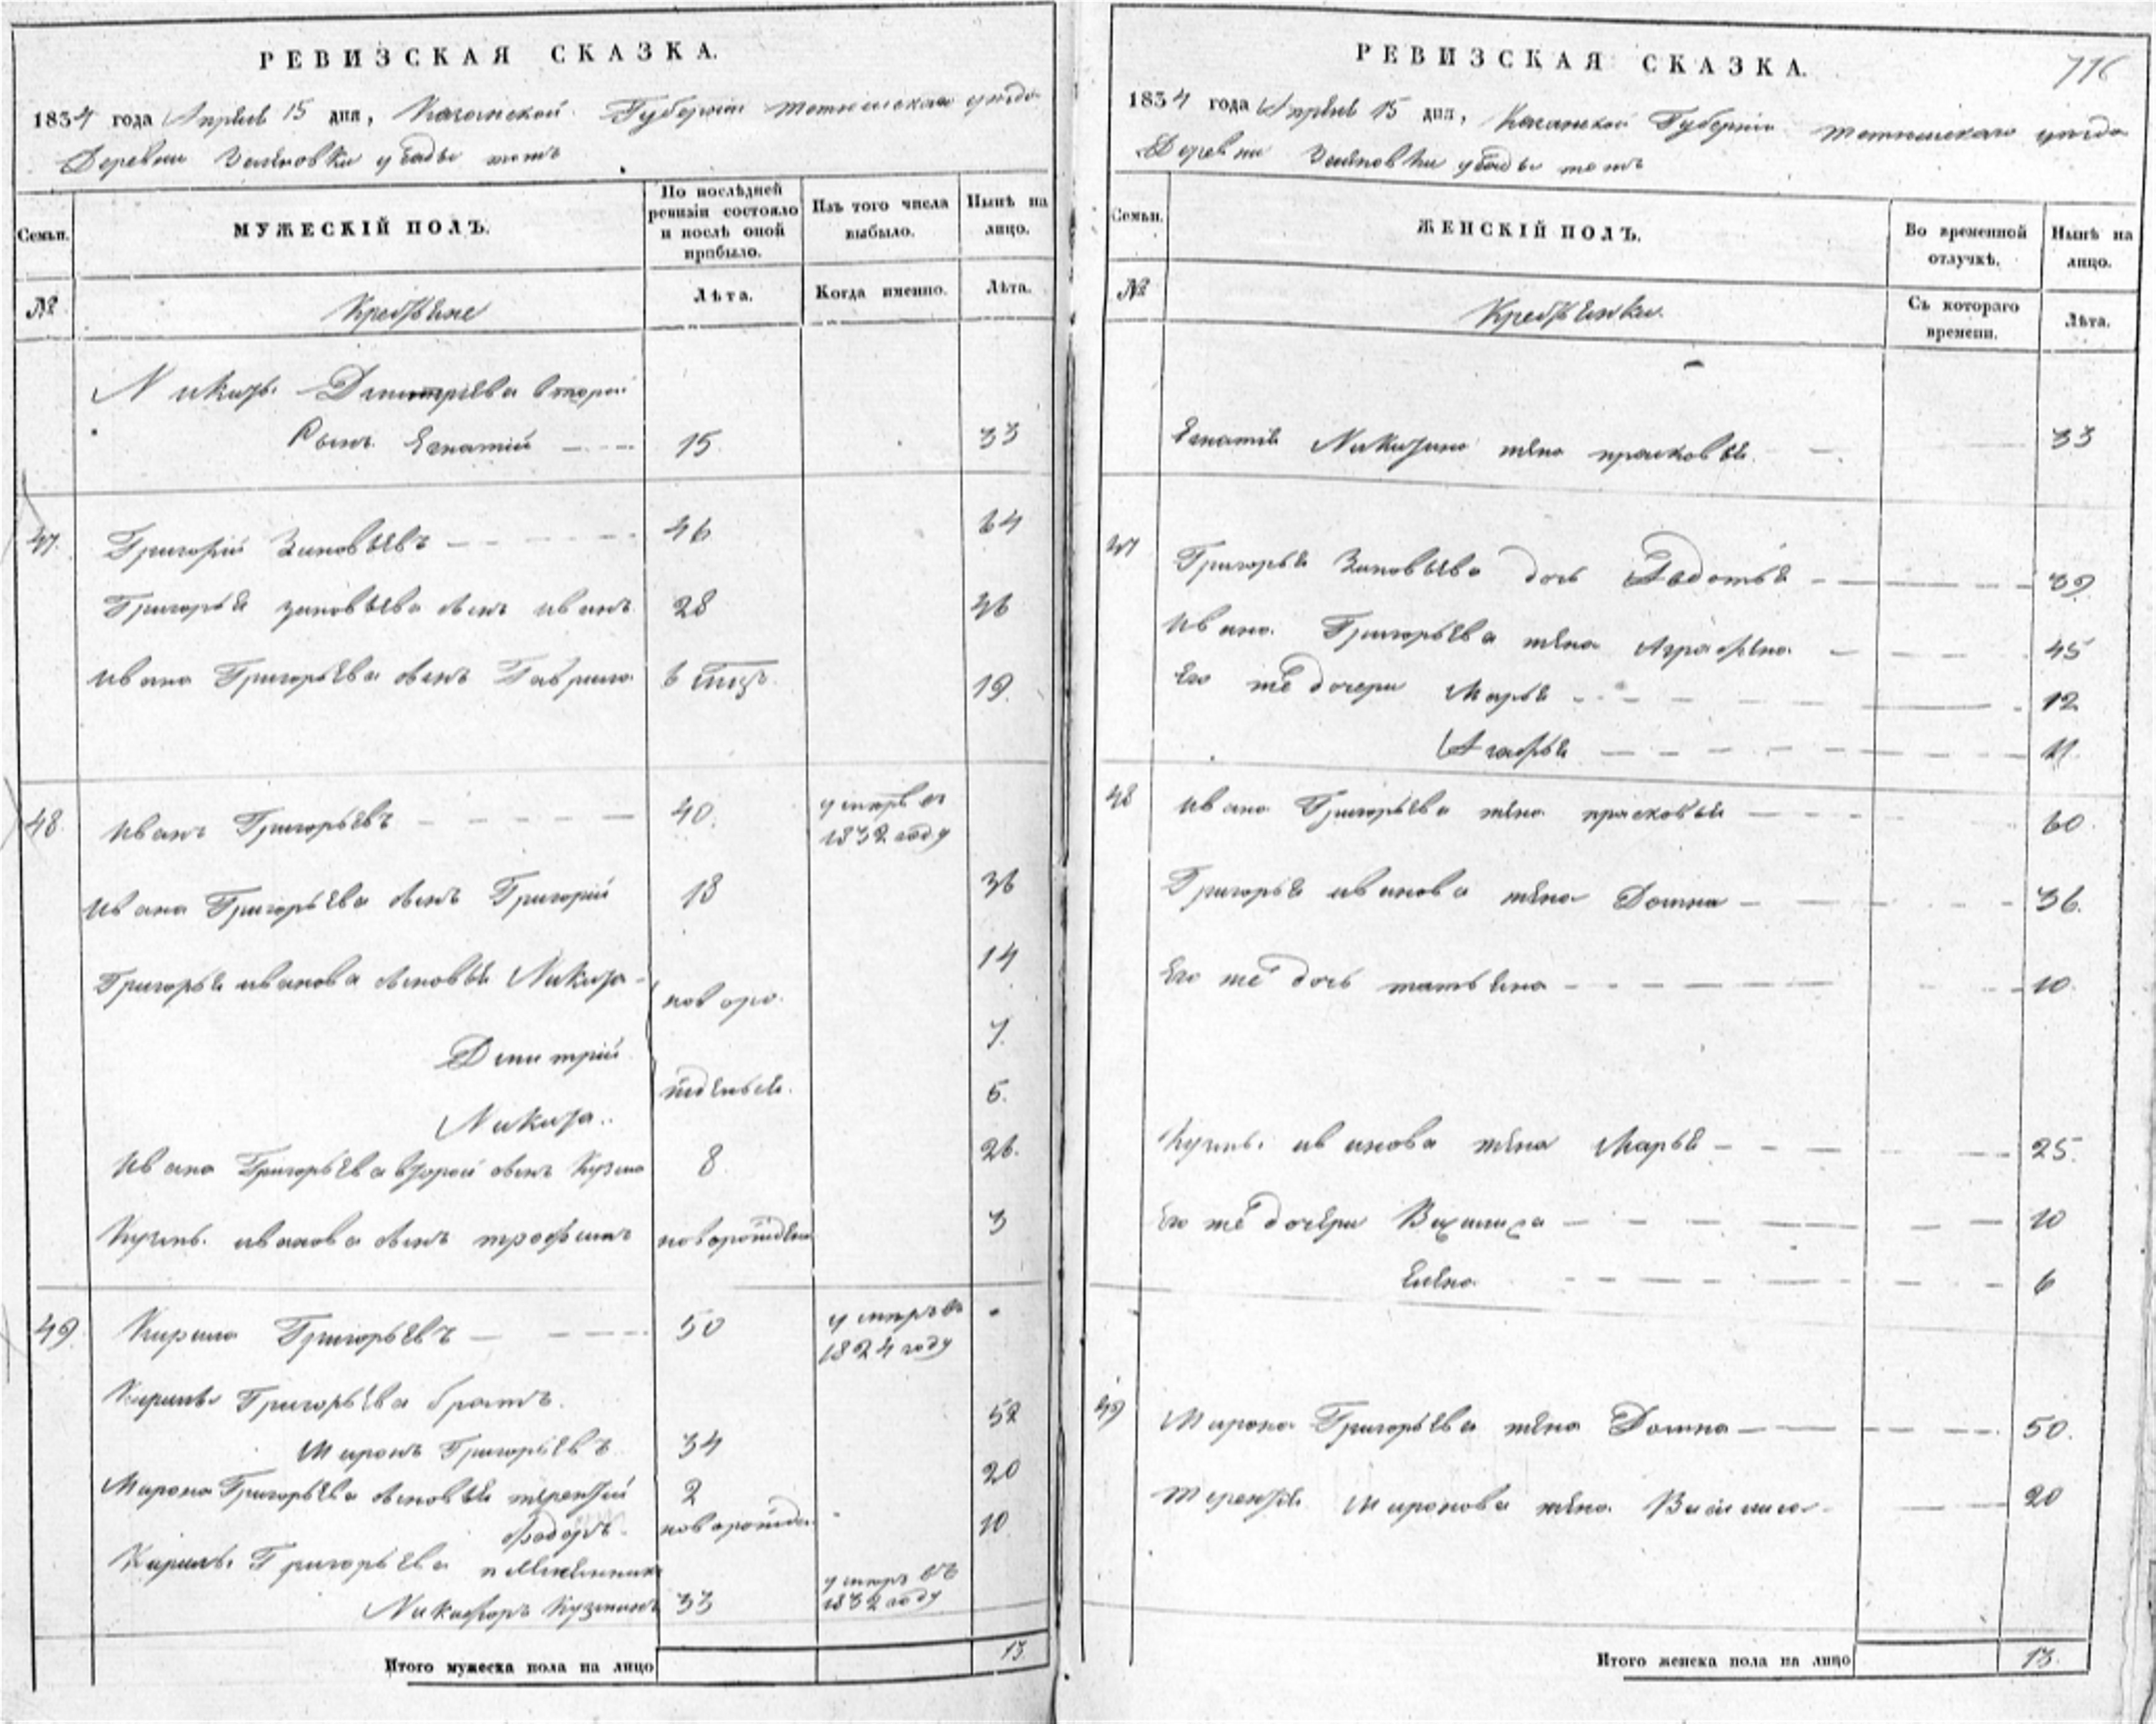 РЕВИЗСКАЯ СКАЗКА.
1834 года Апреля 15 дня, Казанской Губернiи Тетюшскаго уезда
Деревни
МУЖЕСКІЙ ПОЛЪ.
Семьи.
№
По послѣдней ревизіи состояло и послѣ оной прибыло.
Лѣта.
Изъ того числа выбыло.
Когда именно.
Нынѣ на лицо.
Лѣта.
Крестьяне
Никиты Дмитріева второй
Сынъ Егнатій 15 33
47. Григорій Зиновьевъ 46 64
Григорья Зиновьева сынъ Иванъ 28 46
Ивана Григорьева сынъ Гаврила 19
48. Иванъ Григорьевъ 40. умръ въ 1832 году
Ивана Григорьева сынъ Григорій 18 36
Григорья Иванова сыновья Никита 14
новоро
Дмитрій 7.
жденые.
Никита 5.
Ивана Григорьева второй сынъ Кузма 8. 26.
Кузмы Иванова сынъ Трофимъ новорожден 3
49. Кирила Григорьевъ 50 умръ въ 1824 году
Кирилы Григорьева братъ
Миронъ Григорьевъ 34 52
Мирона Григорьева сыновья Терентій 2 20
Федоръ новорожден 10
Кирилы Григорьева племянникъ
Никифоръ Кузминъ 33 умръ въ 1832 году
Итого мужеска пола на лицо 13
РЕВИЗСКАЯ СКАЗКА.
1834 года Апреля 15 дня, Казанской Губерніи Тетюшскаго уезда
Деревни
ЖЕНСКІЙ ПОЛЪ.
Семьи.
№
Во временной отлучкѣ.
Съ котораго времени.
Нынѣ на лицо.
Лѣта.
Крестьянки.
Егнатья Никитина жена Прасковья 33
47 Григорья Зиновьева дочь Авдотья 39
Ивана Григорьева жена Аграфена 45
Его же дочери Марья 12
Агафья 11.
48 Ивана Григорьева жена Прасковья 60
Григорья Иванова жена Домна 36.
Его же дочь Татьяна 10.
Кузмы Иванова жена Марья 25.
Его же дочери Василиса 10
Елена 6
49 Мирона Григорьева жена Домна 50.
Терентья Миронова жена 20
Итого женска пола на лицо 13.